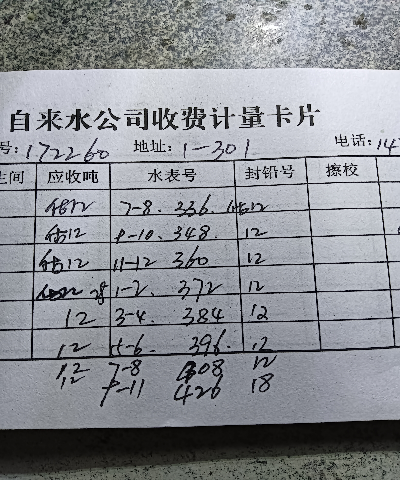 自来水公司收费计量卡片
号: 172260 地址: 1-301 电话: 147
生间 应收吨 水表号 封铅号 擦校
估12 7-8. 336. 估12
估12 9-10. 348. 12
估12 11-12 360 12
1-2. 372 12
12 3-4. 384 12
12 5-6. 396. 12
12 7-8 408 12
12 9-11 426 18